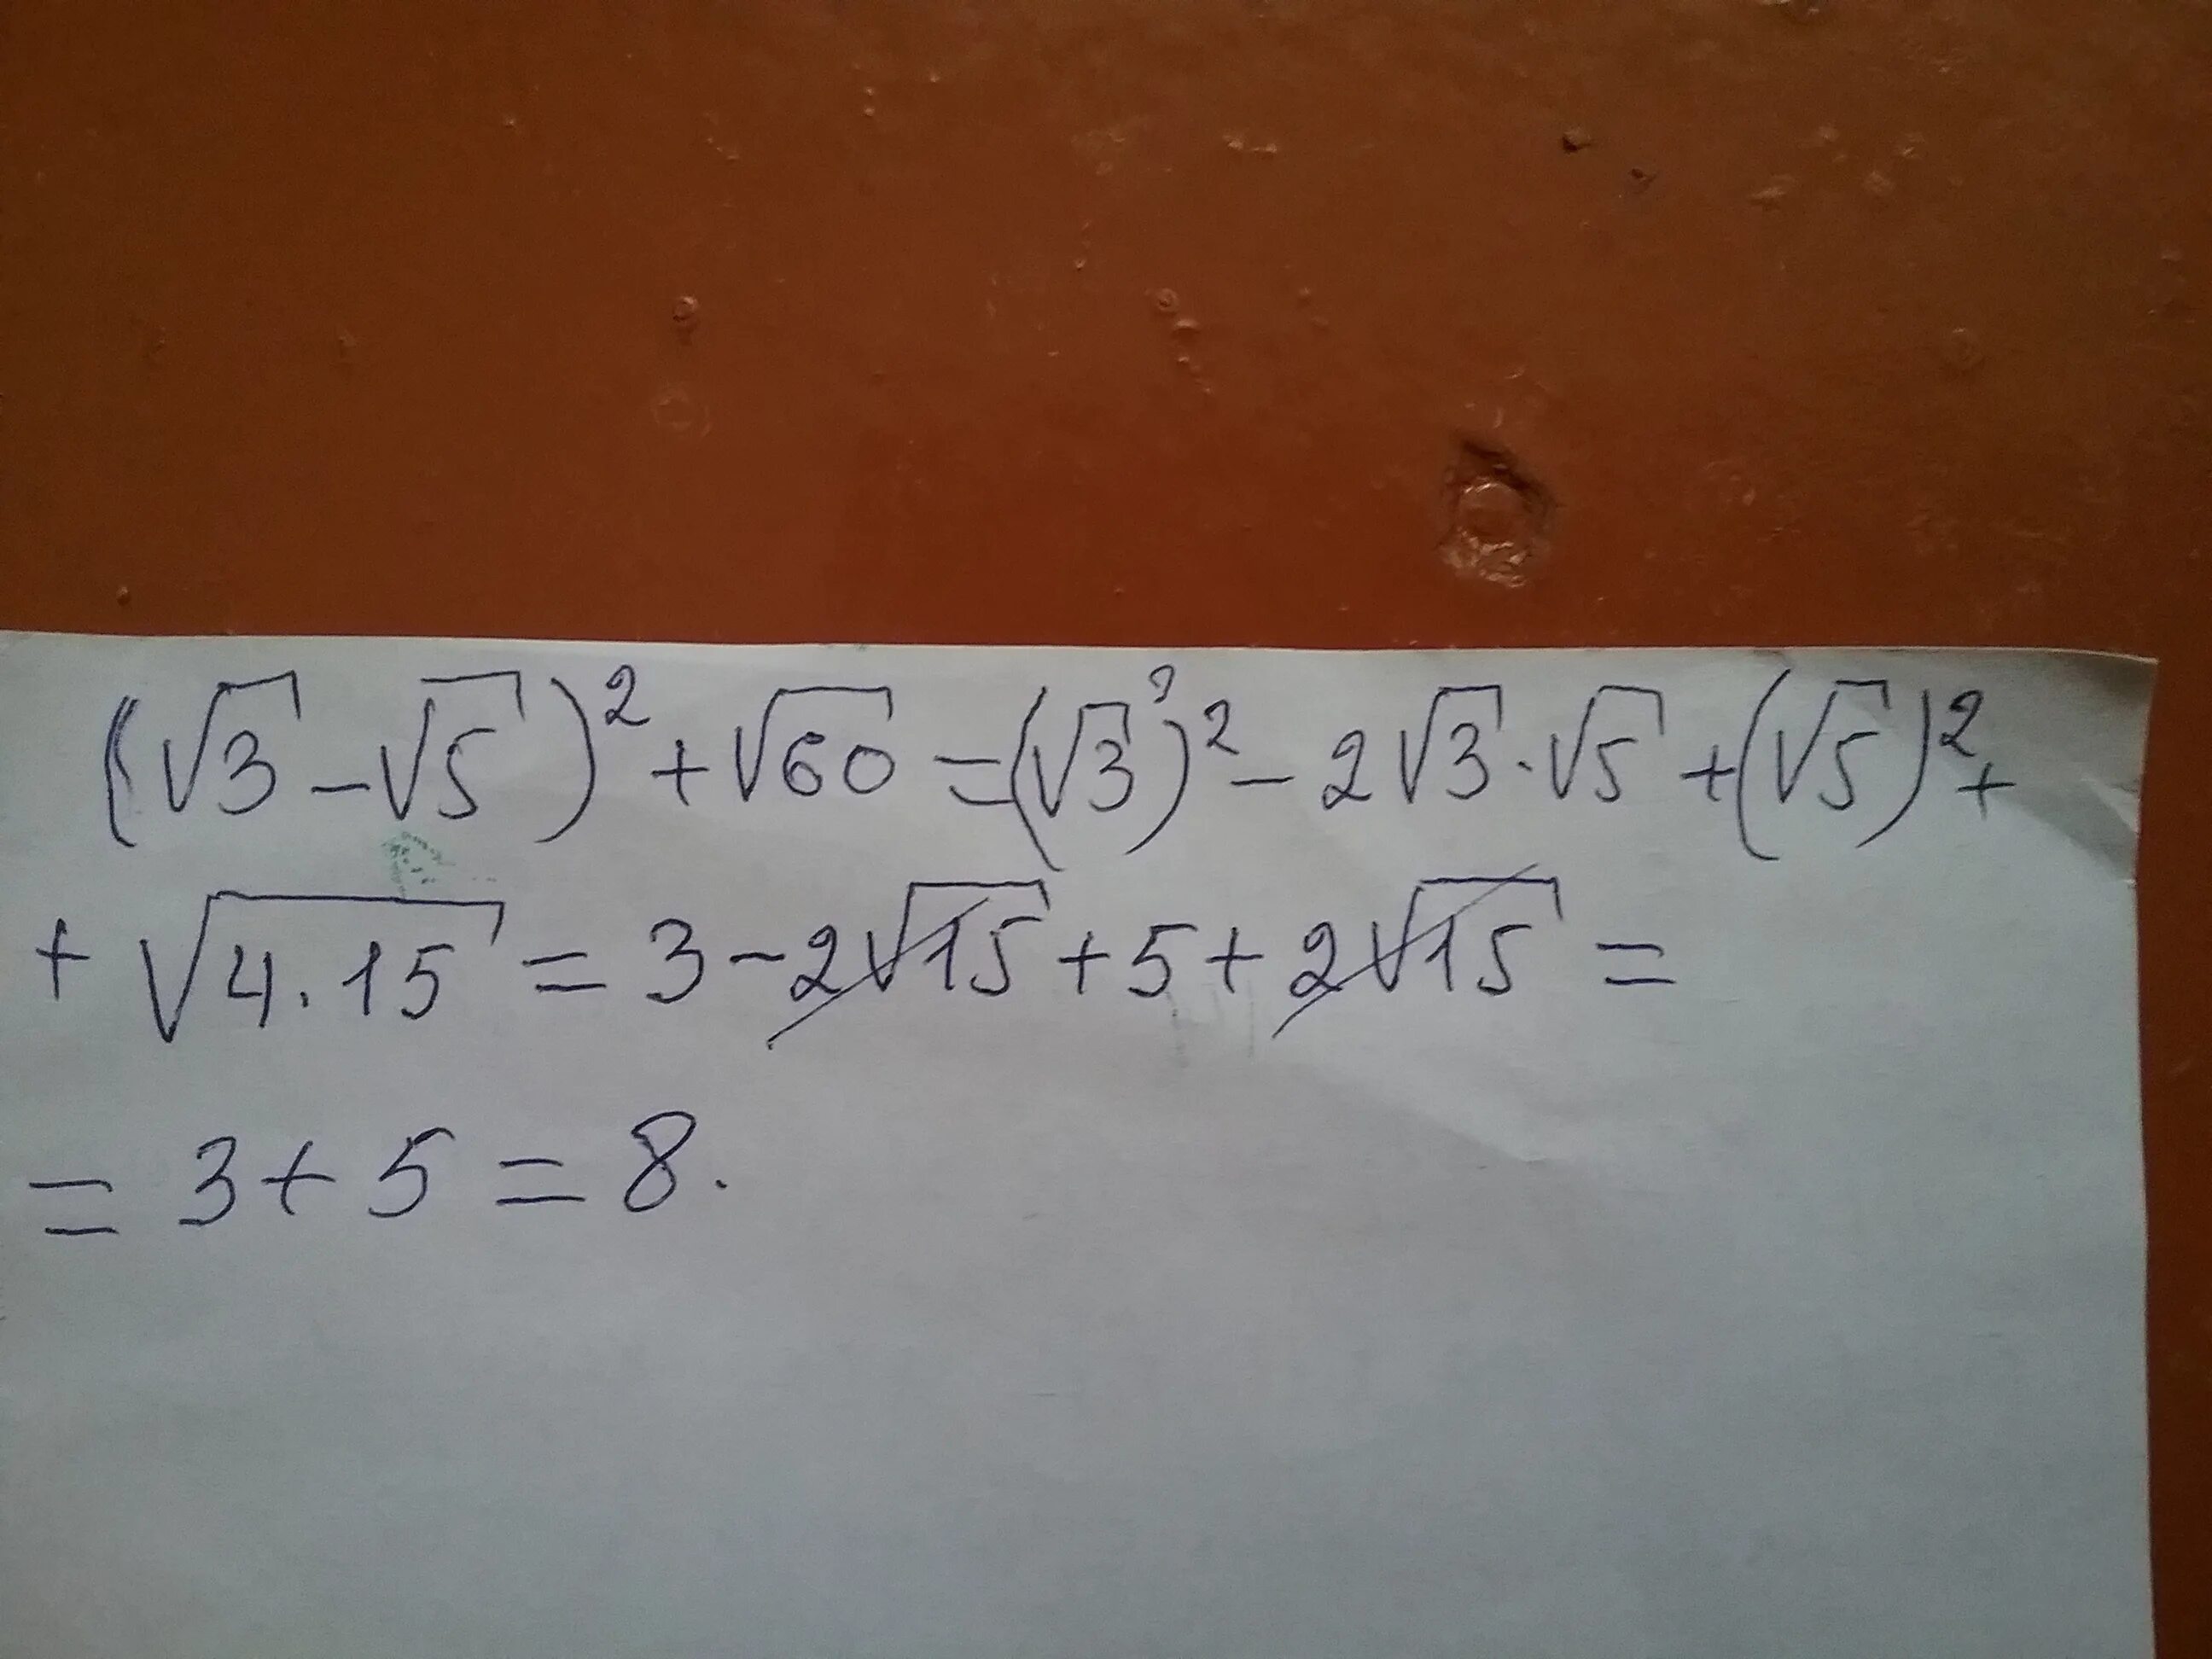 (√3 - √5)² + √60 = (√3)² - 2√3 · √5 + (√5)² +
+ √4·15 = 3 - 2√15 + 5 + 2√15 =
= 3 + 5 = 8.